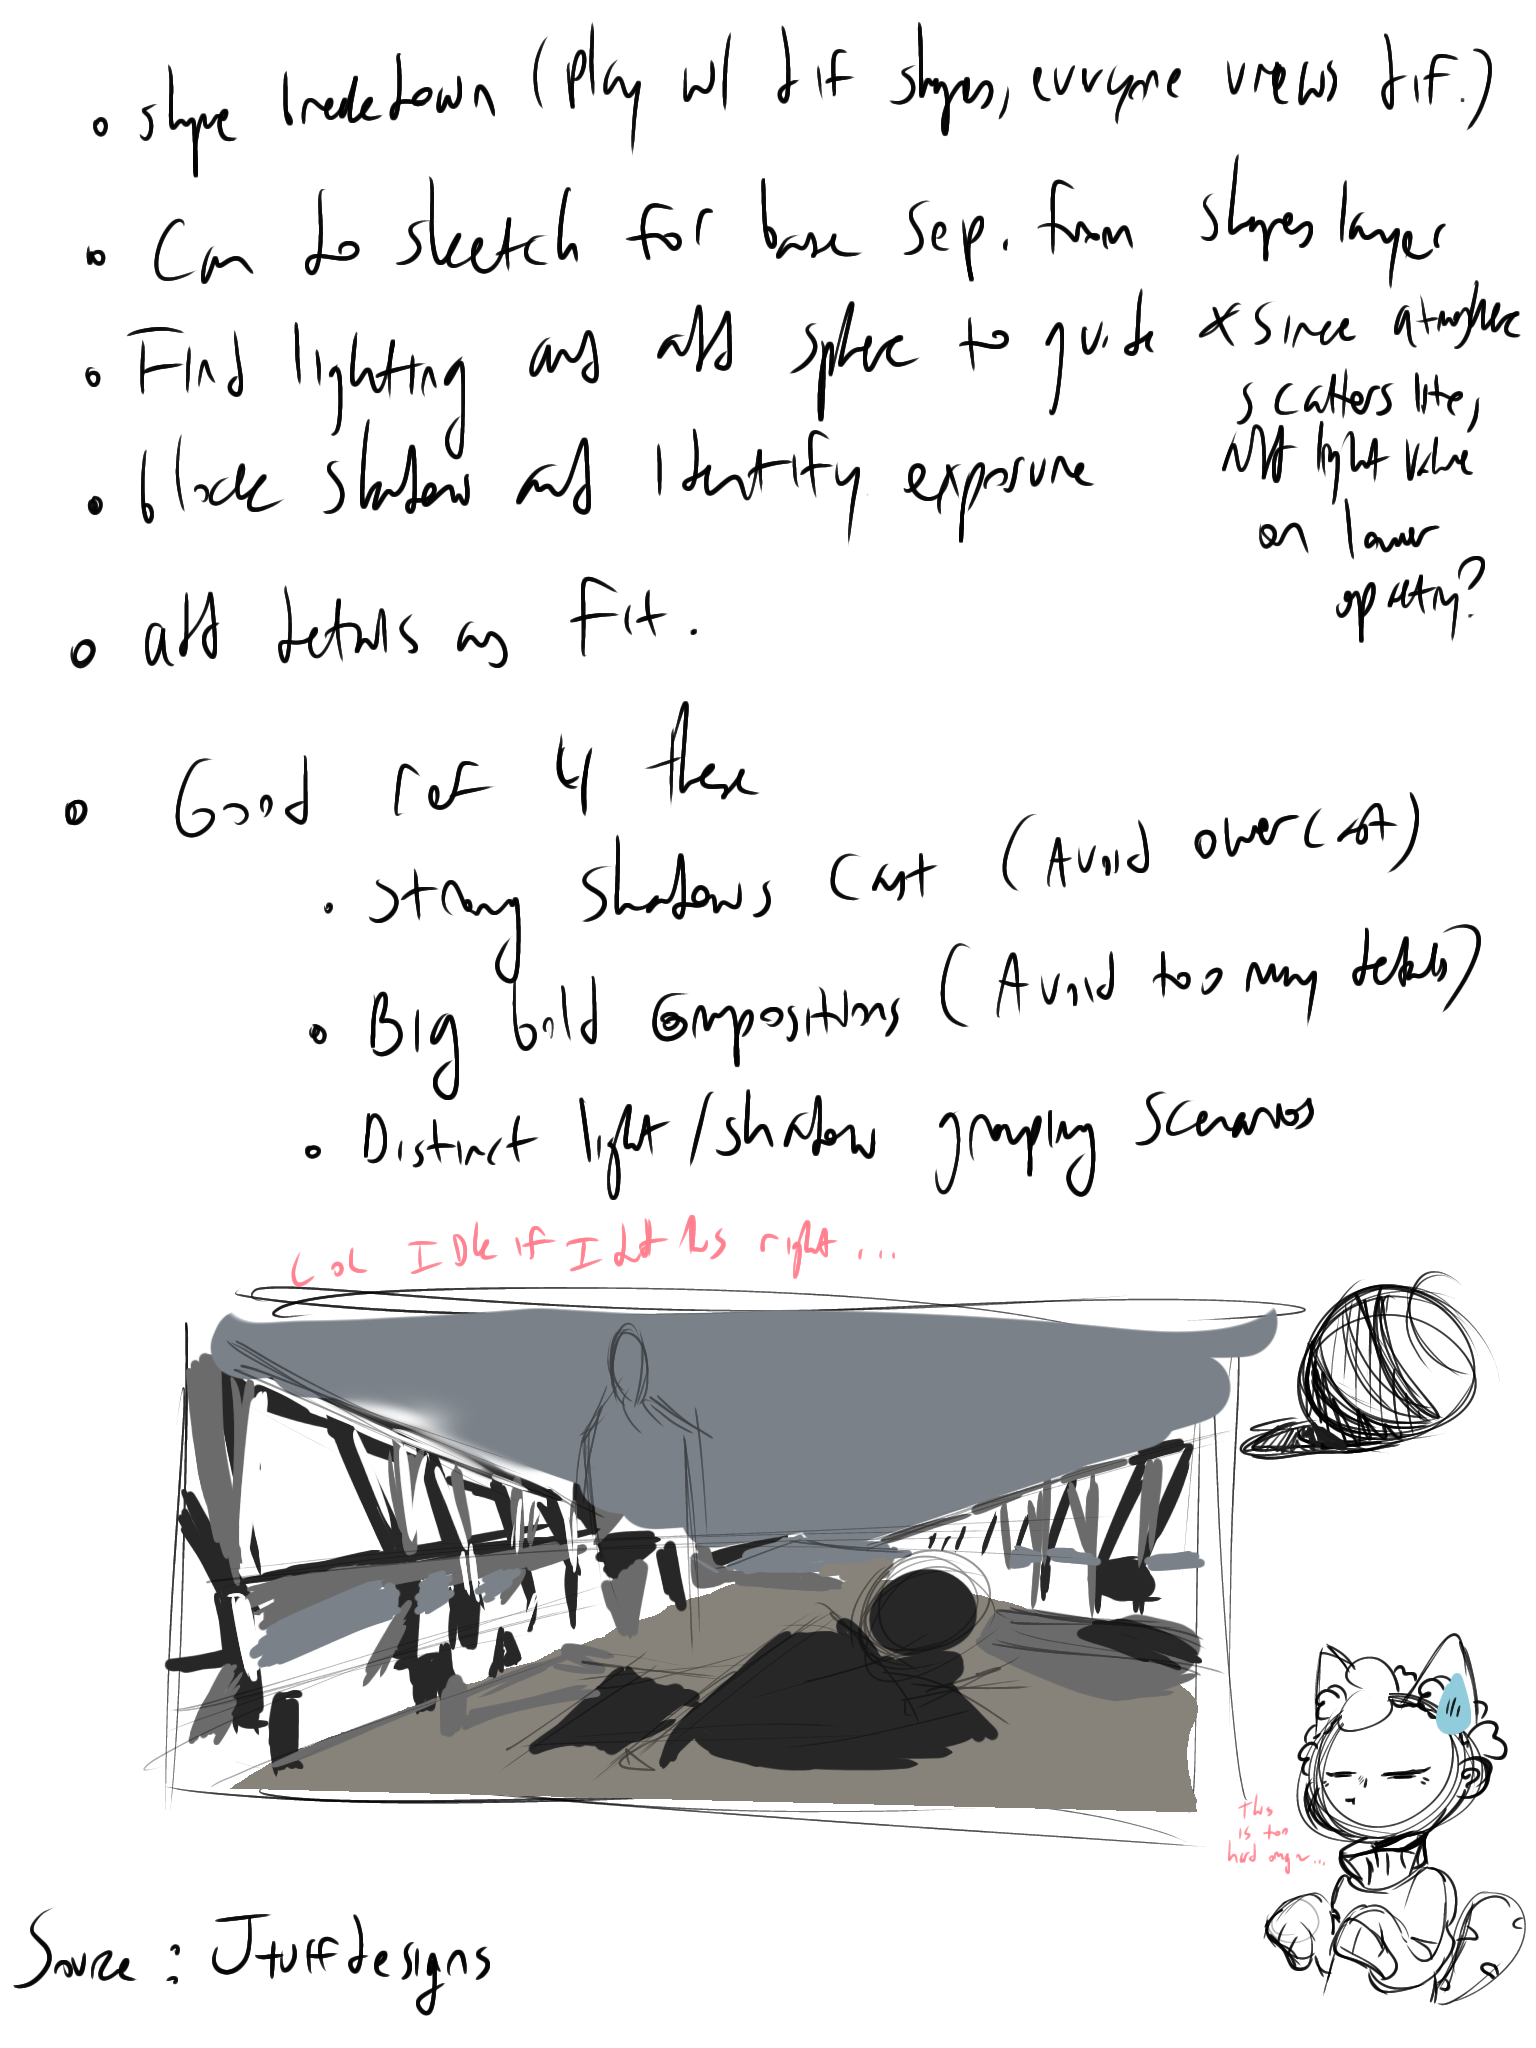 shape breakdown (play w/ dif shapes, everyone views dif.)
Can do sketch for base sep. from shapes layer
Find lighting and add sphere to guide
* since atmosphere
scatters lite,
Add light value
on lower
opacity?
block shadow and identify exposure
add details as fit.
Good ref 4 these
Strong shadows cast (Avoid overcast)
Big bold compositions (Avoid too many details)
Distinct light/shadow grouping scenarios
Lol IDk if I did this right...
This
is too
hard omg ~...
Source: Jtuffdesigns